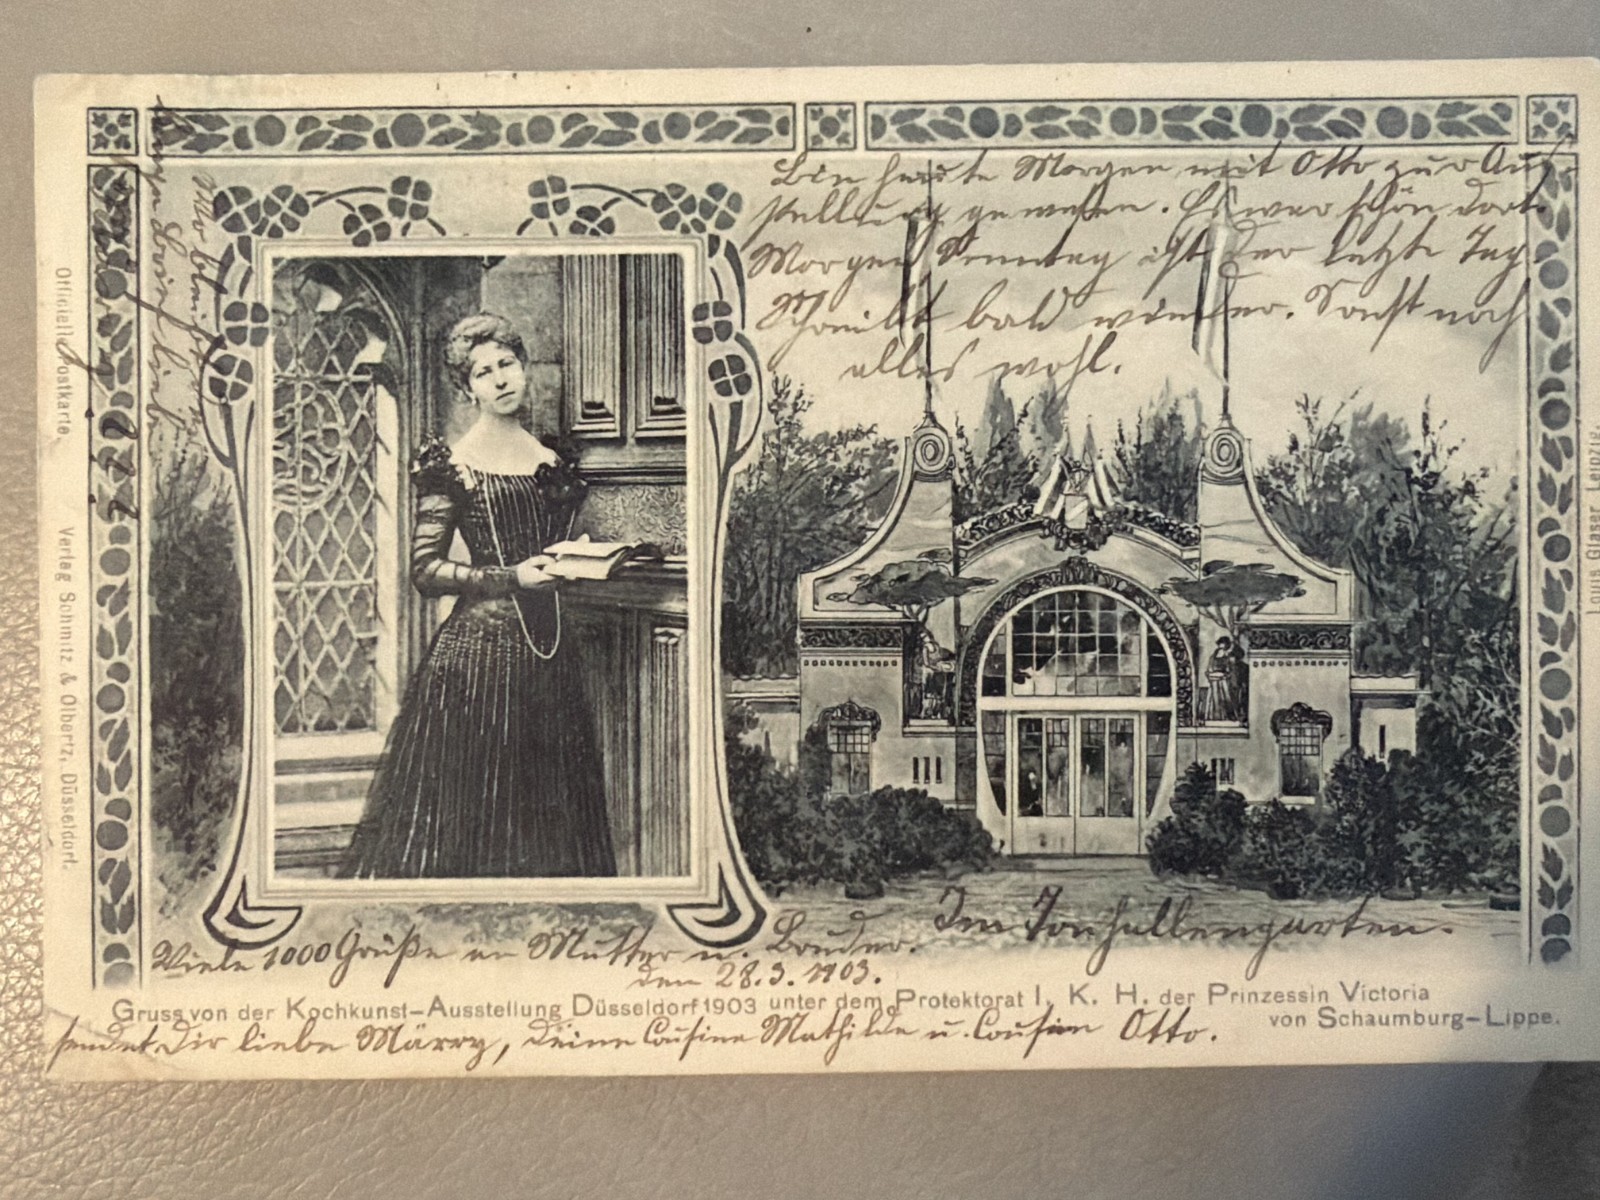 Bin heute Morgen mit Otto zur Aus-
stellung gewesen. Es war schön dort.
Morgen Sonntag ist der letzte Tag.
Schreibt bald wieder. Sonst noch
alles wohl.
Im Tonhallengarten.
Viele 1000 Grüße an Mutter u. Bruder.
den 28.3.1903.
Gruss von der Kochkunst-Ausstellung Düsseldorf 1903 unter dem Protektorat I. K. H. der Prinzessin Victoria
von Schaumburg-Lippe.
sendet Dir liebe Märry, Deine Cousine Mathilde u. Cousin Otto.
Officielle Postkarte
Verlag Schmitz & Olbertz, Düsseldorf.
Louis Glaser, Leipzig.
Otto